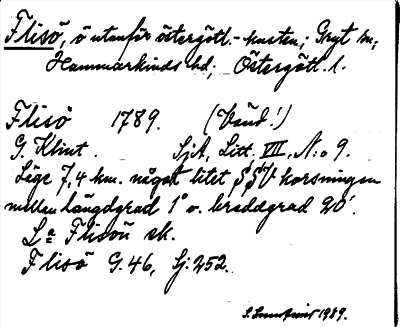 Flisö, ö utanför östergötl.-kusten; Gryt sn;
Hammarkinds hd; Östergötl. l.
Flisö 1789. (Vänd!)
G. Klint. SjA, Litt. VII, N:o 9.
Läge 7,4 km. något litet SSV korsningen
mellan längdgrad 1° o. breddgrad 20'.
La Flisön sk.
Flisö G. 46, Sj: 252.
1989.